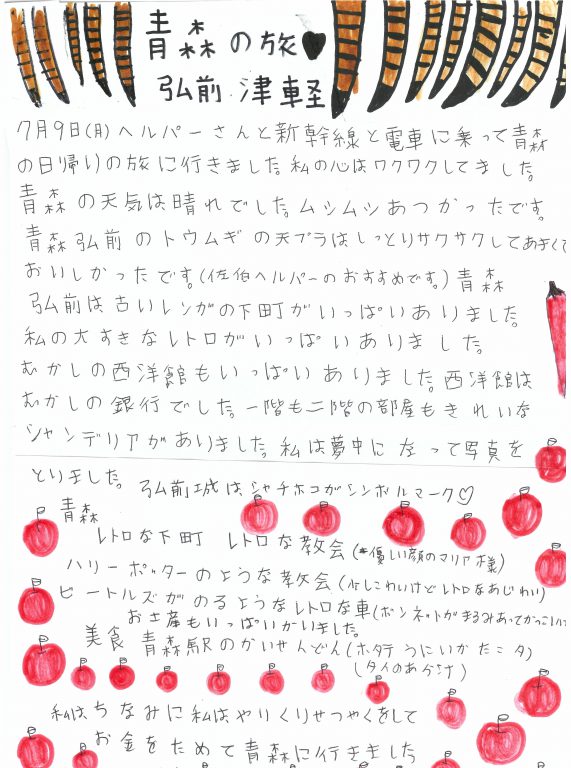 青森の旅♥
弘前 津軽
7月9日(月)ヘルパーさんと新幹線と電車に乗って青森
の日帰りの旅に行きました。私の心はワクワクしてました。
青森の天気は晴れでした。ムシムシあつかったです。
青森弘前のトウムギの天プラはしっとりサクサクしてあまくて
おいしかったです。(佐伯ヘルパーのおすすめです。)青森
弘前は古いレンガの下町がいっぱいありました。
私の大すきなレトロがいっぱいありました。
むかしの西洋館もいっぱいありました。西洋館は
むかしの銀行でした。一階も二階の部屋もきれいな
シャンデリアがありました。私は夢中になって写真を
とりました。弘前城はシャチホコがシンボルマーク♡
青森
レトロな下町 レトロな教会(*優しい顔のマリア様)
ハリーポッターのような教会(少しこわいけどレトロなあじわい)
ビートルズがのるようなレトロな車(ボンネットがまるみあってかっこいい
お土産もいっぱいかいました。
美食 青森駅のかいせんどん(ホタテ うに いか たこ タ)
(タイのあら汁)
私はちなみに私はやりくりせつやくをして
お金をためて青森に行きました